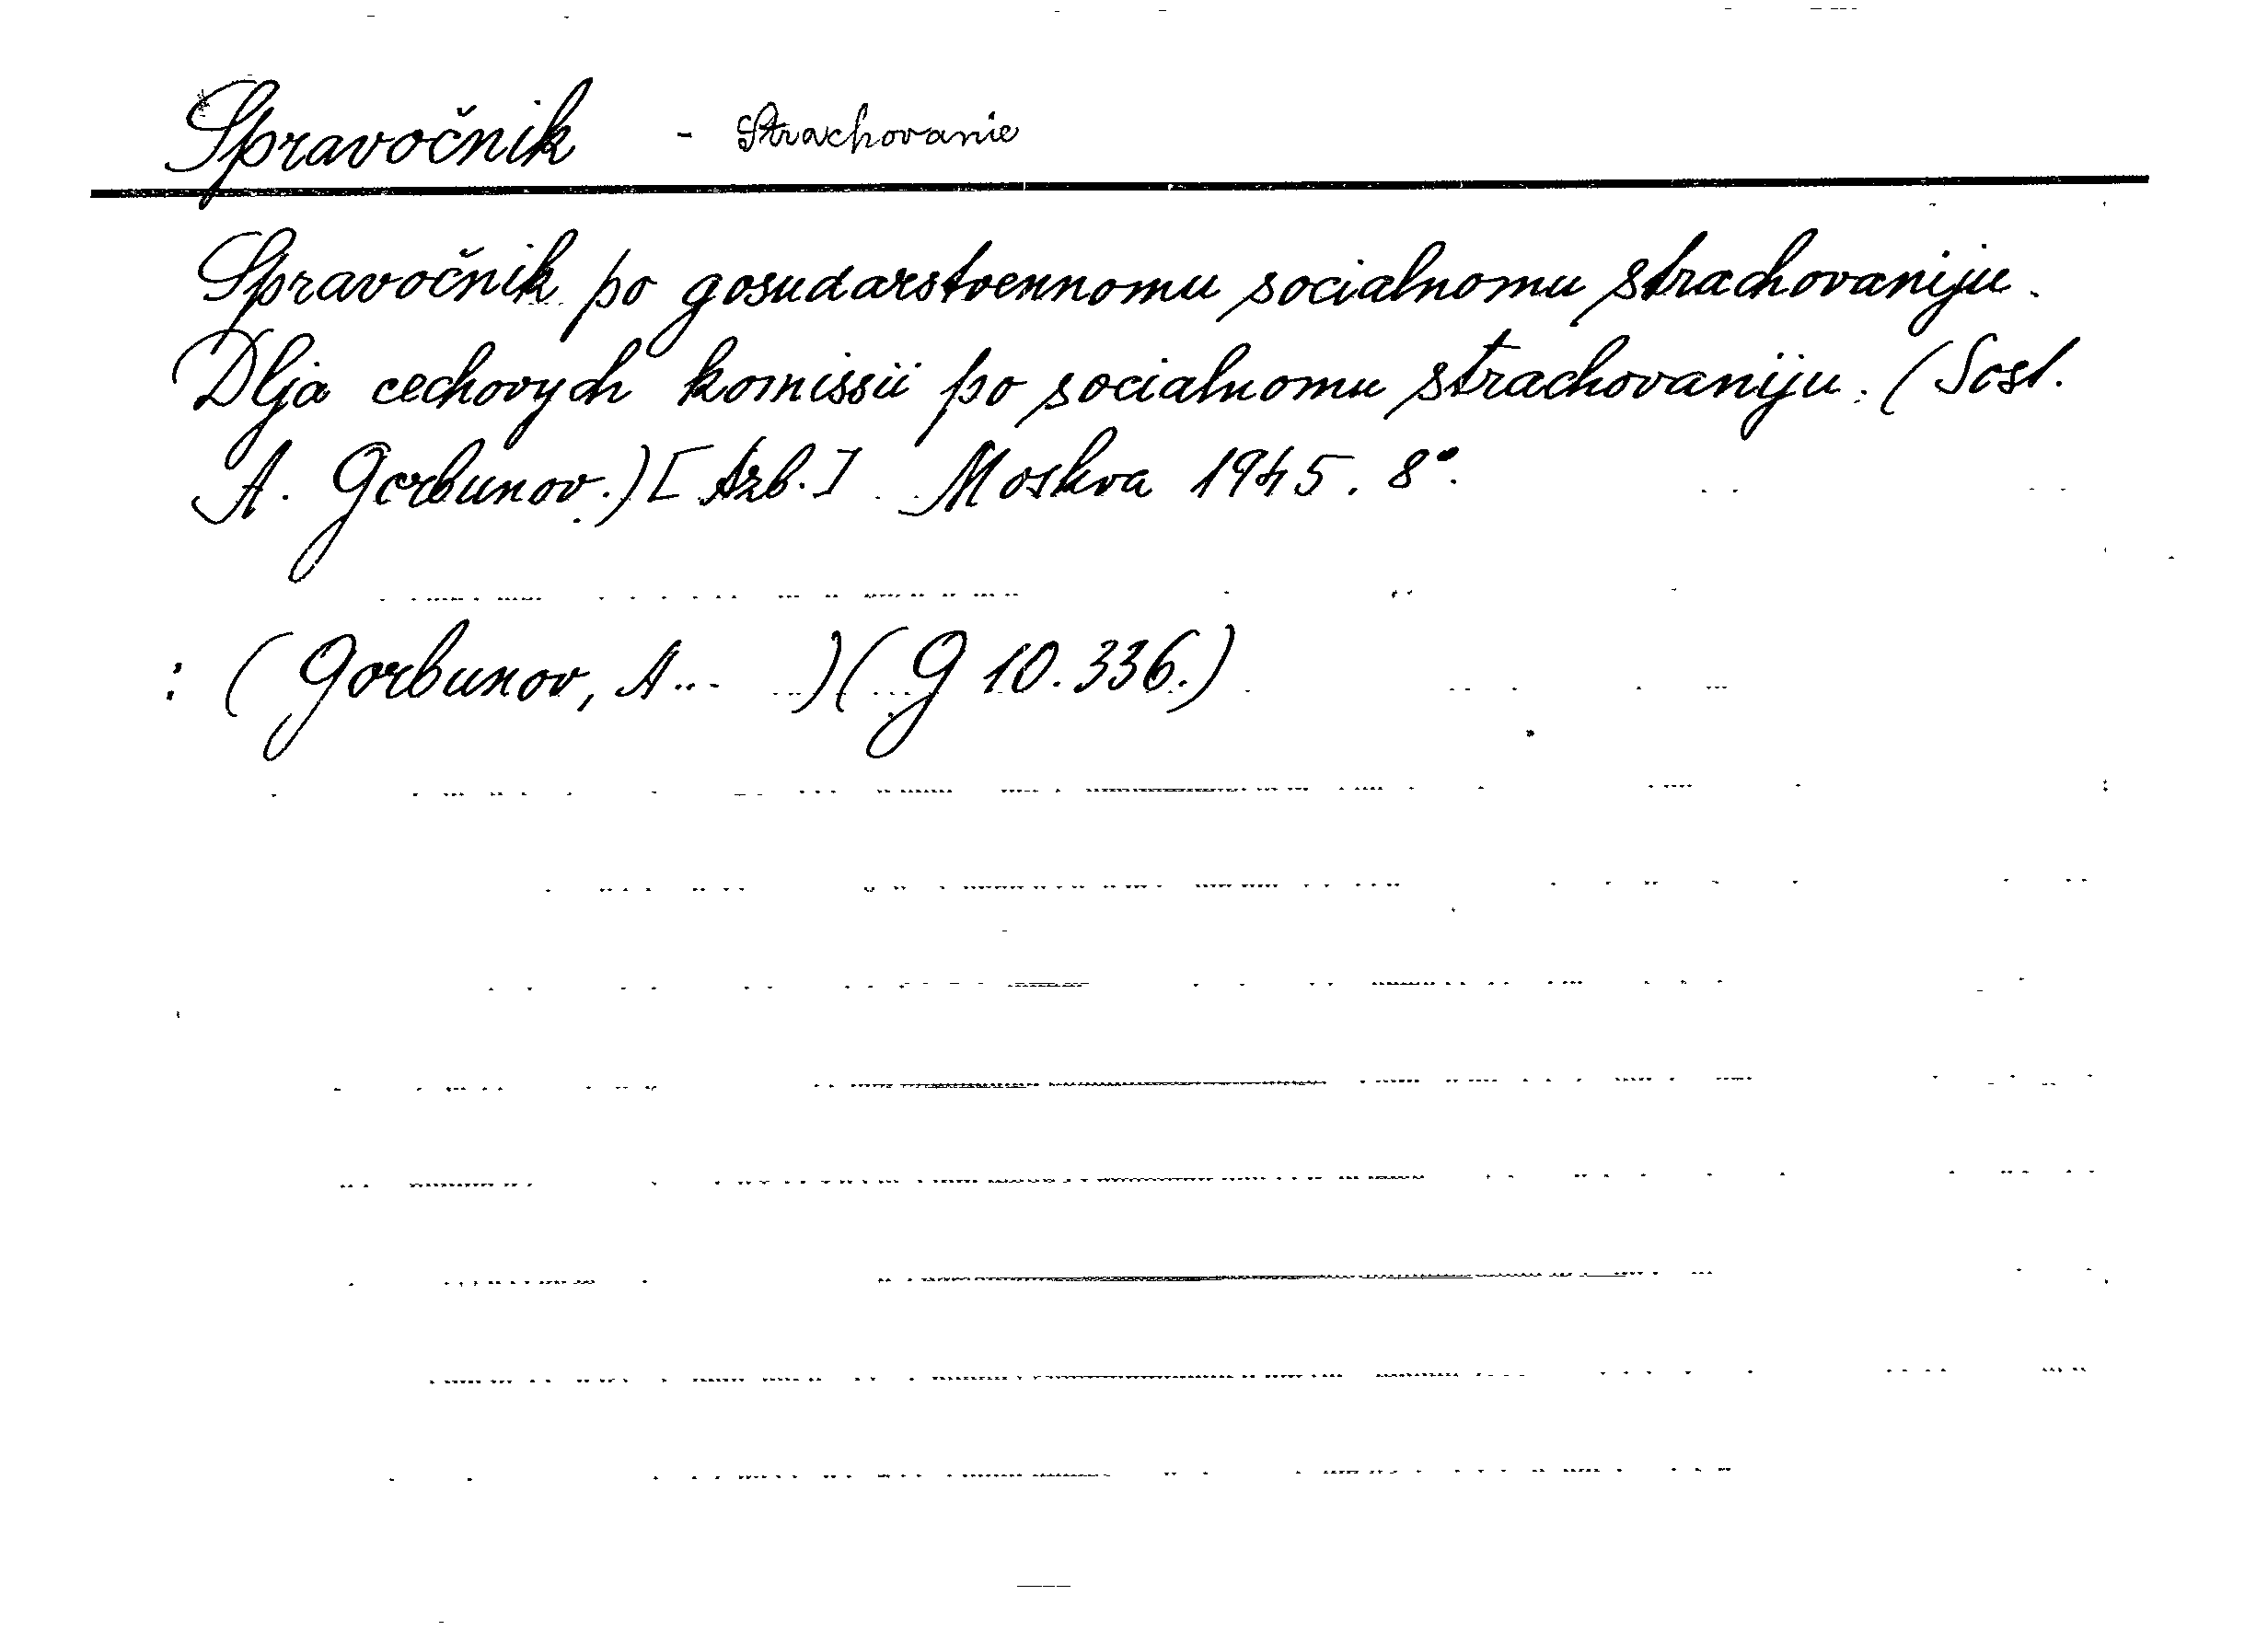 Spravočnik - Strachovanie
Spravočnik po gosudarstvennomu socialnomu strachovaniju.
Dlja cechovych komissii po socialnomu strachovaniju. (Sost.
A. Gorbunov.) [Azb.] Moskva 1945. 8°.
: (Gorbunov, A... ) (G 10.336.)